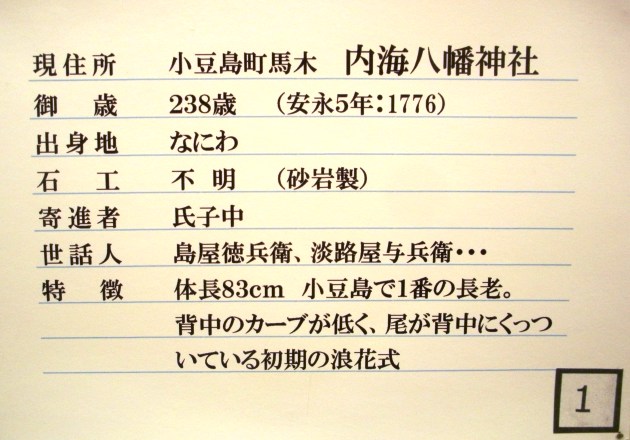 現住所 小豆島町馬木 内海八幡神社
御歳 238歳 (安永5年:1776)
出身地 なにわ
石工 不明 (砂岩製)
寄進者 氏子中
世話人 島屋徳兵衛、淡路屋与兵衛・・・
特徴 体長83cm 小豆島で1番の長老。
背中のカーブが低く、尾が背中にくっつ
いている初期の浪花式
1